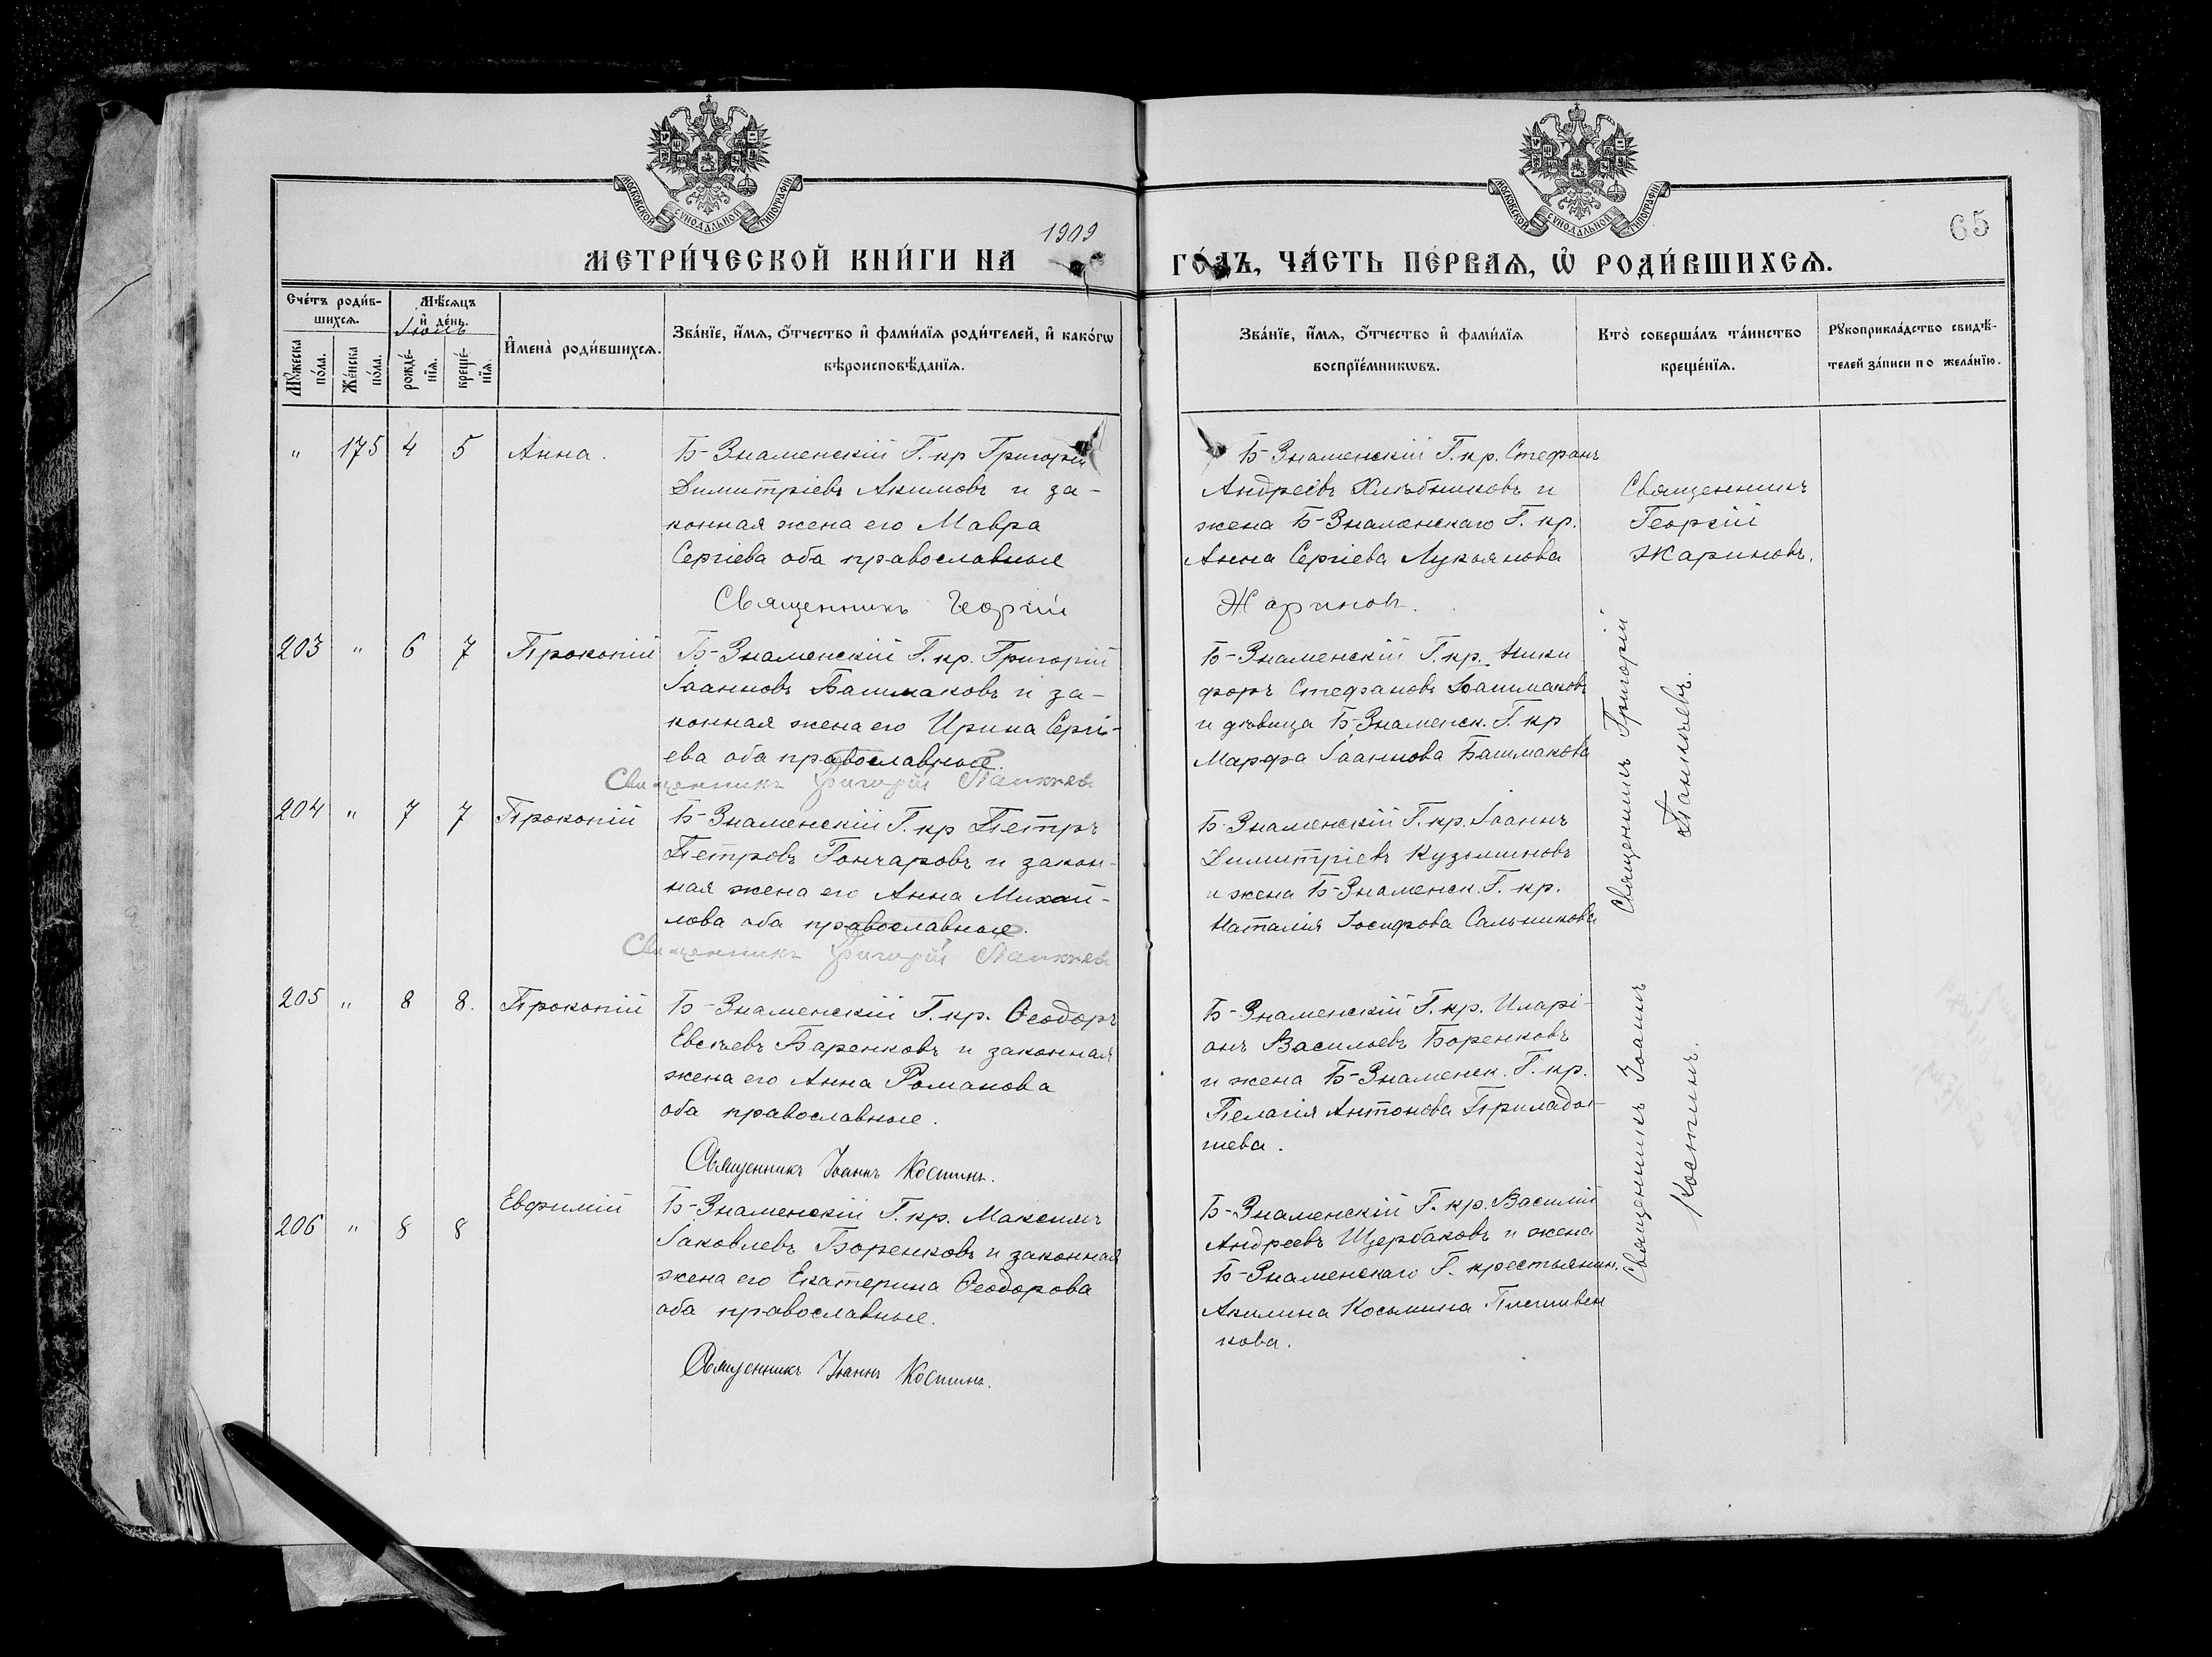 МОСКОВСКОЙ СУНОДАЛЬНОЙ ТИПОГРАФІИ
МОСКОВСКОЙ СУНОДАЛЬНОЙ ТИПОГРАФІИ
65
1909
МЕТРИ́ЧЕСКОЙ КНИ́ГИ НА
ГО́ДЪ, ЧА́СТЬ ПЕ́РВАѦ, Ѽ РОДИ́ВШИХСѦ.
Сче́тъ роди́в-
шихсѧ.
Мѣ́сѧцъ
и҆ де́нь.
Іюль
Мꙋ́жеска
по́ла.
Же́нска
по́ла.
рожде́-
нїѧ.
креще́-
нїѧ.
И҆мена̀ роди́вшихсѧ.
Зва́нїе, и҆́мѧ, ѻ҆́тчество и҆ фами́лїѧ роди́телей, и҆ како́гѡ
вѣроисповѣ́данїѧ.
Зва́нїе, и҆́мѧ, ѻ҆́тчество и҆ фами́лїѧ
воспрїе́мникѡвъ.
Кто̀ соверша́лъ та́инство
креще́нїѧ.
Рꙋкоприкла́дство свидѣ́-
телей за́писи по жела́нїю.
" 175 4 5 Анна.
Б-Знаменскій Г. кр Григорій
Димитріевъ Акимовъ и за-
конная жена его Мавра
Сергіева оба православные
Священникъ Георгій
Б-Знаменскій Г. кр. Стефанъ
Андреевъ Хлѣбниковъ и
жена Б-Знаменскаго Г. кр.
Анна Сергіева Лукьянова
Жаринов.
Священникъ
Георгій
Жариновъ.
203 " 6 7 Прокопій
Б-Знаменскій Г. кр. Григорій
Іоанновъ Башмаковъ и за-
конная жена его Ирина Сергі-
ева оба православные.
Священникъ Григорій Панкѣев
Б-Знаменскій Г. кр. Ники
форъ Стефановъ Башмаковъ
и дѣвица Б-Знаменск. Г. кр
Марфа Іоаннова Башмакова
Священникъ Григорій
Панкѣевъ.
204 " 7 7 Прокопій
Б-Знаменскій Г. кр Петръ
Петровъ Гончаровъ и закон-
ная жена его Анна Михай-
лова оба православные.
Священникъ Григорій Панкѣев
Б-Знаменскій Г. кр. Іоаннъ
Димитріевъ Кузьминовъ
и жена Б-Знаменск. Г. кр.
Наталія Іосифова Сальникова
205 " 8 8. Прокопій
Б-Знаменскій Г. кр. Ѳеодоръ
Евсѣевъ Баренковъ и законная
жена его Анна Романова
оба православные.
Священникъ Іоаннъ Костинъ.
Б-Знаменскій Г. кр. Иларі-
онъ Васильевъ Боренковъ
и жена Б-Знаменск. Г. кр.
Пелагія Антонова
шева.
Священникъ Іоаннъ
Костинъ.
206 " 8 8 Евфимій
Б-Знаменскій Г. кр. Максимъ
Іаковлевъ Боренковъ и законная
жена его Екатерина Ѳеодорова
оба православные.
Священникъ Іоаннъ Костинъ.
Б-Знаменскій Г. кр. Василій
Андреевъ Щербаковъ и жена
Б-Знаменскаго Г. крестьянин.
Акилина Косьмина
кова.